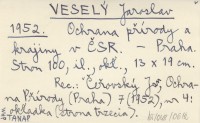 VESELÝ Jaroslav
1952. Ochrana přírody a
krajiny v ČSR. - Praha.
Stron 100, il., okł., 13 x 19 cm.
Rec.: Čeřovský Jan, Ochra-
na Přírody (Praha) 7 (1952), nr 4:
okładka (strona trzecia).
TANAP